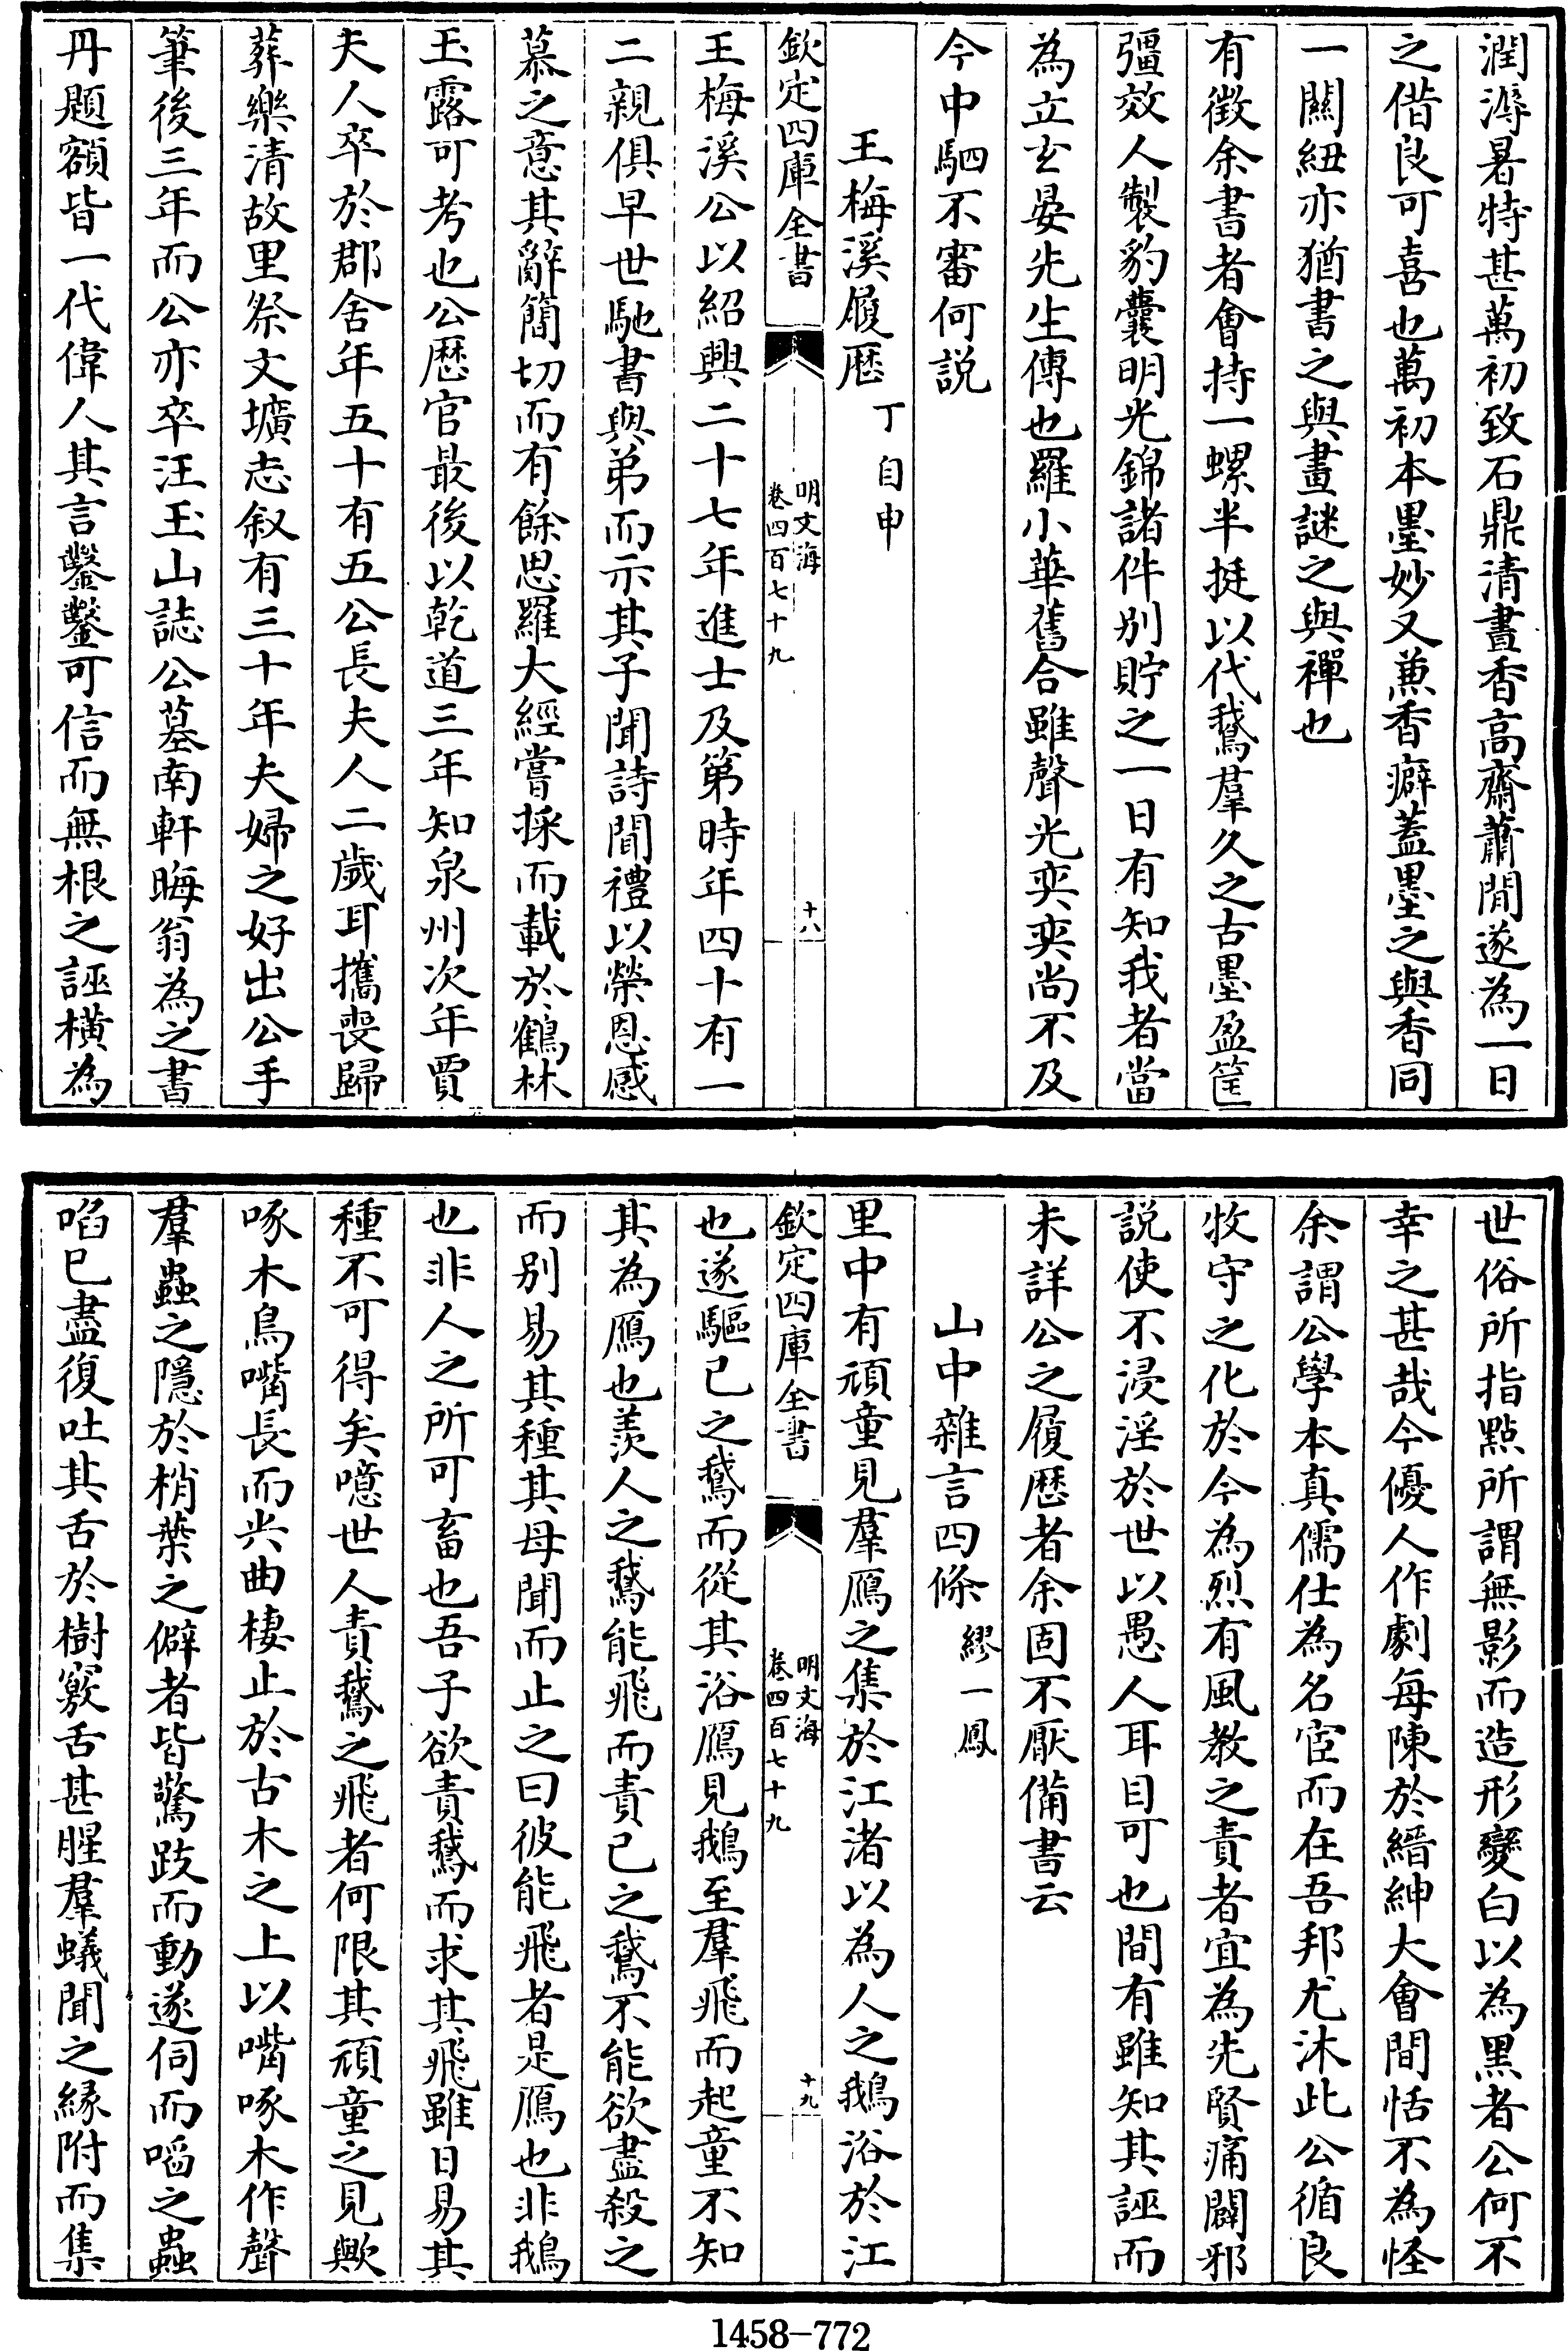 潤溽暑特甚萬初致石鼎清晝香高齋蕭閒遂為一日
之偕良可喜也萬初本墨妙又兼香癖蓋墨之與香同
一關紐亦猶書之與畫謎之與禪也
有徵余書者會持一螺半挺以代鵞羣久之古墨盈筐
彊效人製豹囊明光錦諸件别貯之一日有知我者當
為立玄晏先生傳也羅小華舊合雖聲光奕奕尚不及
今中駟不審何説
王梅溪履歴 丁自申
欽定四庫全書
明文海
卷四百七十九
十八
王梅溪公以紹興二十七年進士及第時年四十有一
二親俱早世馳書與弟而示其子聞詩聞禮以榮恩感
慕之意其辭簡切而有餘思羅大經嘗採而載於鶴林
玉露可考也公歴官最後以乾道三年知泉州次年賈
夫人卒於郡舍年五十有五公長夫人二歲耳攜喪歸
葬樂清故里祭文壙志叙有三十年夫婦之好出公手
筆後三年而公亦卒汪玉山誌公墓南軒晦翁為之書
丹題額皆一代偉人其言鑿鑿可信而無根之誣横為
世俗所指點所謂無影而造形變白以為黑者公何不
幸之甚哉今優人作劇每陳於縉紳大會間恬不為怪
余謂公學本真儒仕為名宦而在吾邦尤沐此公循良
牧守之化於今為烈有風教之責者宜為先賢痛闢邪
説使不浸淫於世以愚人耳目可也間有雖知其誣而
未詳公之履歴者余固不厭備書云
山中雜言四條 繆一鳳
里中有頑童見羣鴈之集於江渚以為人之鵝浴於江
欽定四庫全書
明文海
卷四百七十九
十九
也遂驅已之鵞而從其浴鴈見鵝至羣飛而起童不知
其為鴈也羨人之鵞能飛而責已之鵞不能欲盡殺之
而别易其種其母聞而止之曰彼能飛者是鴈也非鵝
也非人之所可畜也吾子欲責鵞而求其飛雖日易其
種不可得矣噫世人責鵞之飛者何限其頑童之見歟
啄木鳥嘴長而尖曲棲止於古木之上以嘴啄木作聲
羣蟲之隱於梢葉之僻者皆驚跂而動遂伺而啗之蟲
啗已盡復吐其舌於樹竅舌甚腥羣蟻聞之緣附而集
1458-772